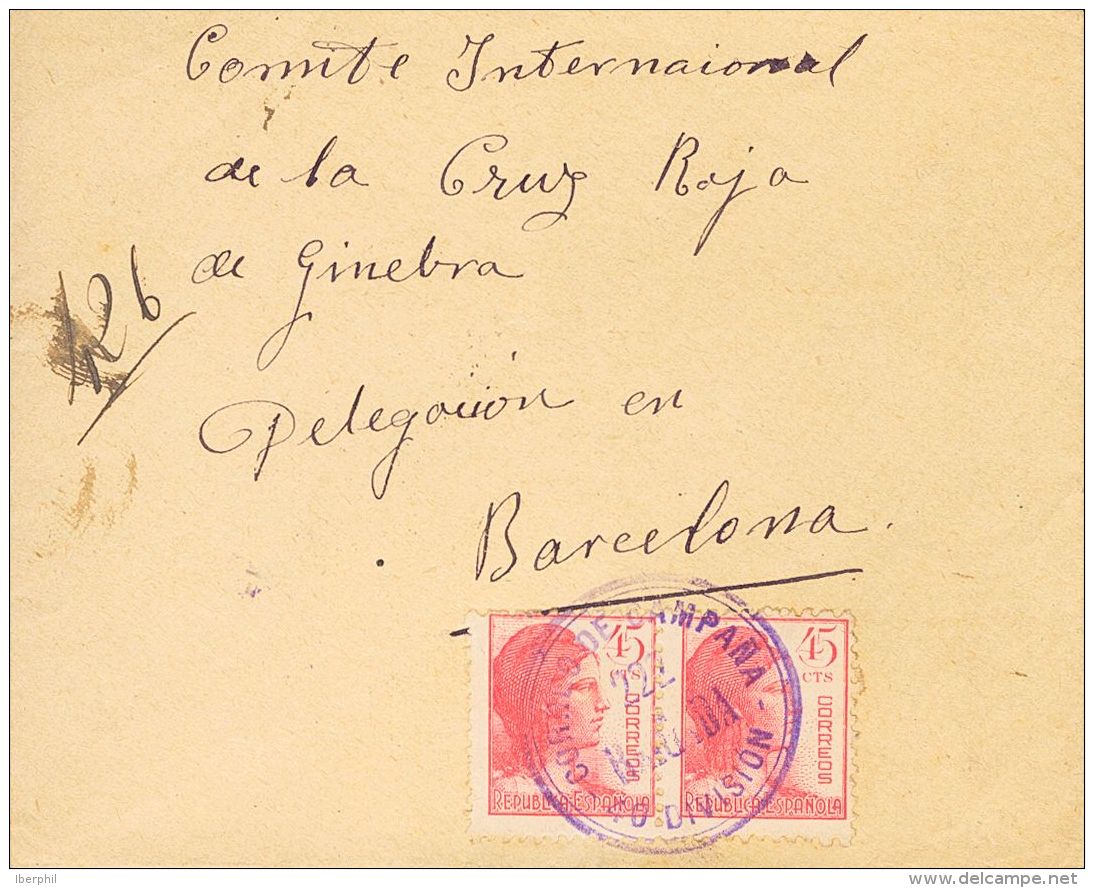 Comite Internaional
de la Cruz Roja
de Ginebra
126
Delegacion en
Barcelona.
CORREO DE CAMPAÑA -
222
40 DIVISIÓN -
45 CTS CORREOS
REPUBLICA ESPAÑOLA
45 CTS CORREOS
REPUBLICA ESPAÑOLA
Iberphil
delcampe.net